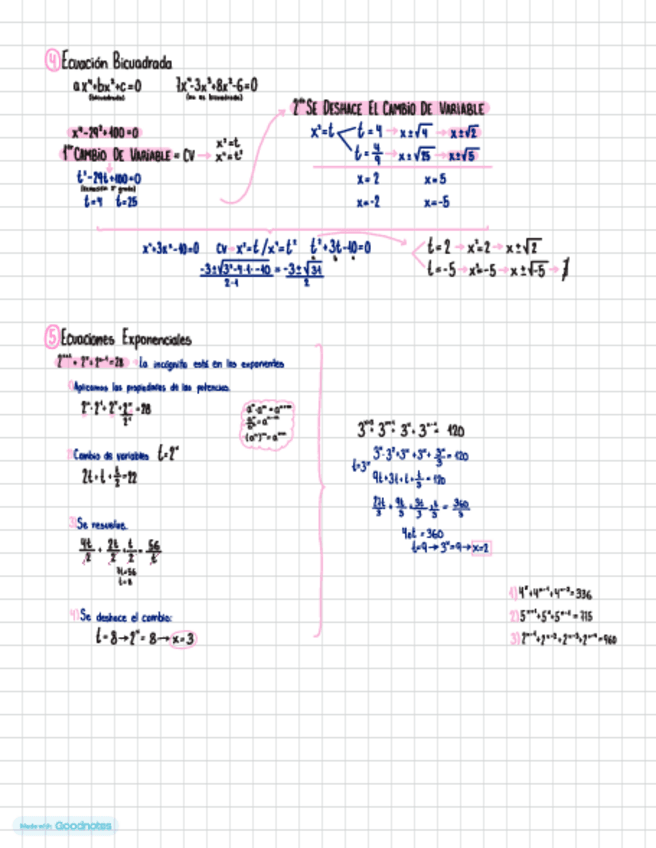 4 Ecuación Bicuadrada
ax⁴+bx²+c=0
7x⁴-3x³+8x²-6=0
(bicuadrada)
x⁴-29²+100=0
1º CAMBIO DE VARIABLE = CV → x²=t
x⁴=t²
t²-29t+100=0
(Ecuación 2º grado)
t=4 t=25
SE DESHACE EL CAMBIO DE VARIABLE
x²=t
t=4 → x±√4 → x±√2
→ x±√25 → x±√5
x=2 x=5
x=-2 x=-5
x⁴+3x²-10=0 CV→ x²=t / x⁴=t² t²+3t-10=0
t=2 → x²=2 → x±√2
t=-5 → x²=-5 → x±√-5 →
5 Ecuaciones Exponenciales
La incógnita está en los exponentes
Aplicamos las propiedades de las potencias.
aⁿ·aᵐ=aⁿ⁺ᵐ
Cambio de variables t=2ˣ
2t+t+t/2=22
3) Se resuelve.
4t/2 + 2t/2 + t/2 = 56/t
7t=56
t=8
4) Se deshace el cambio:
t=8→2ˣ=8→x=3
t=3ˣ
9t+3t+t+t/3=120
27t/3 + 9t/3 + 3t/3 + t/3 = 360/3
40t=360
t=9→3ˣ=9→x=2
1) 4ˣ+4ˣ⁻¹+4ˣ⁻²=336
2) 5ˣ⁺¹+5ˣ+5ˣ⁻¹=775
3) 2ˣ⁻¹+2ˣ⁻²+2ˣ⁻³+2ˣ⁻⁴=960
Made with Goodnotes